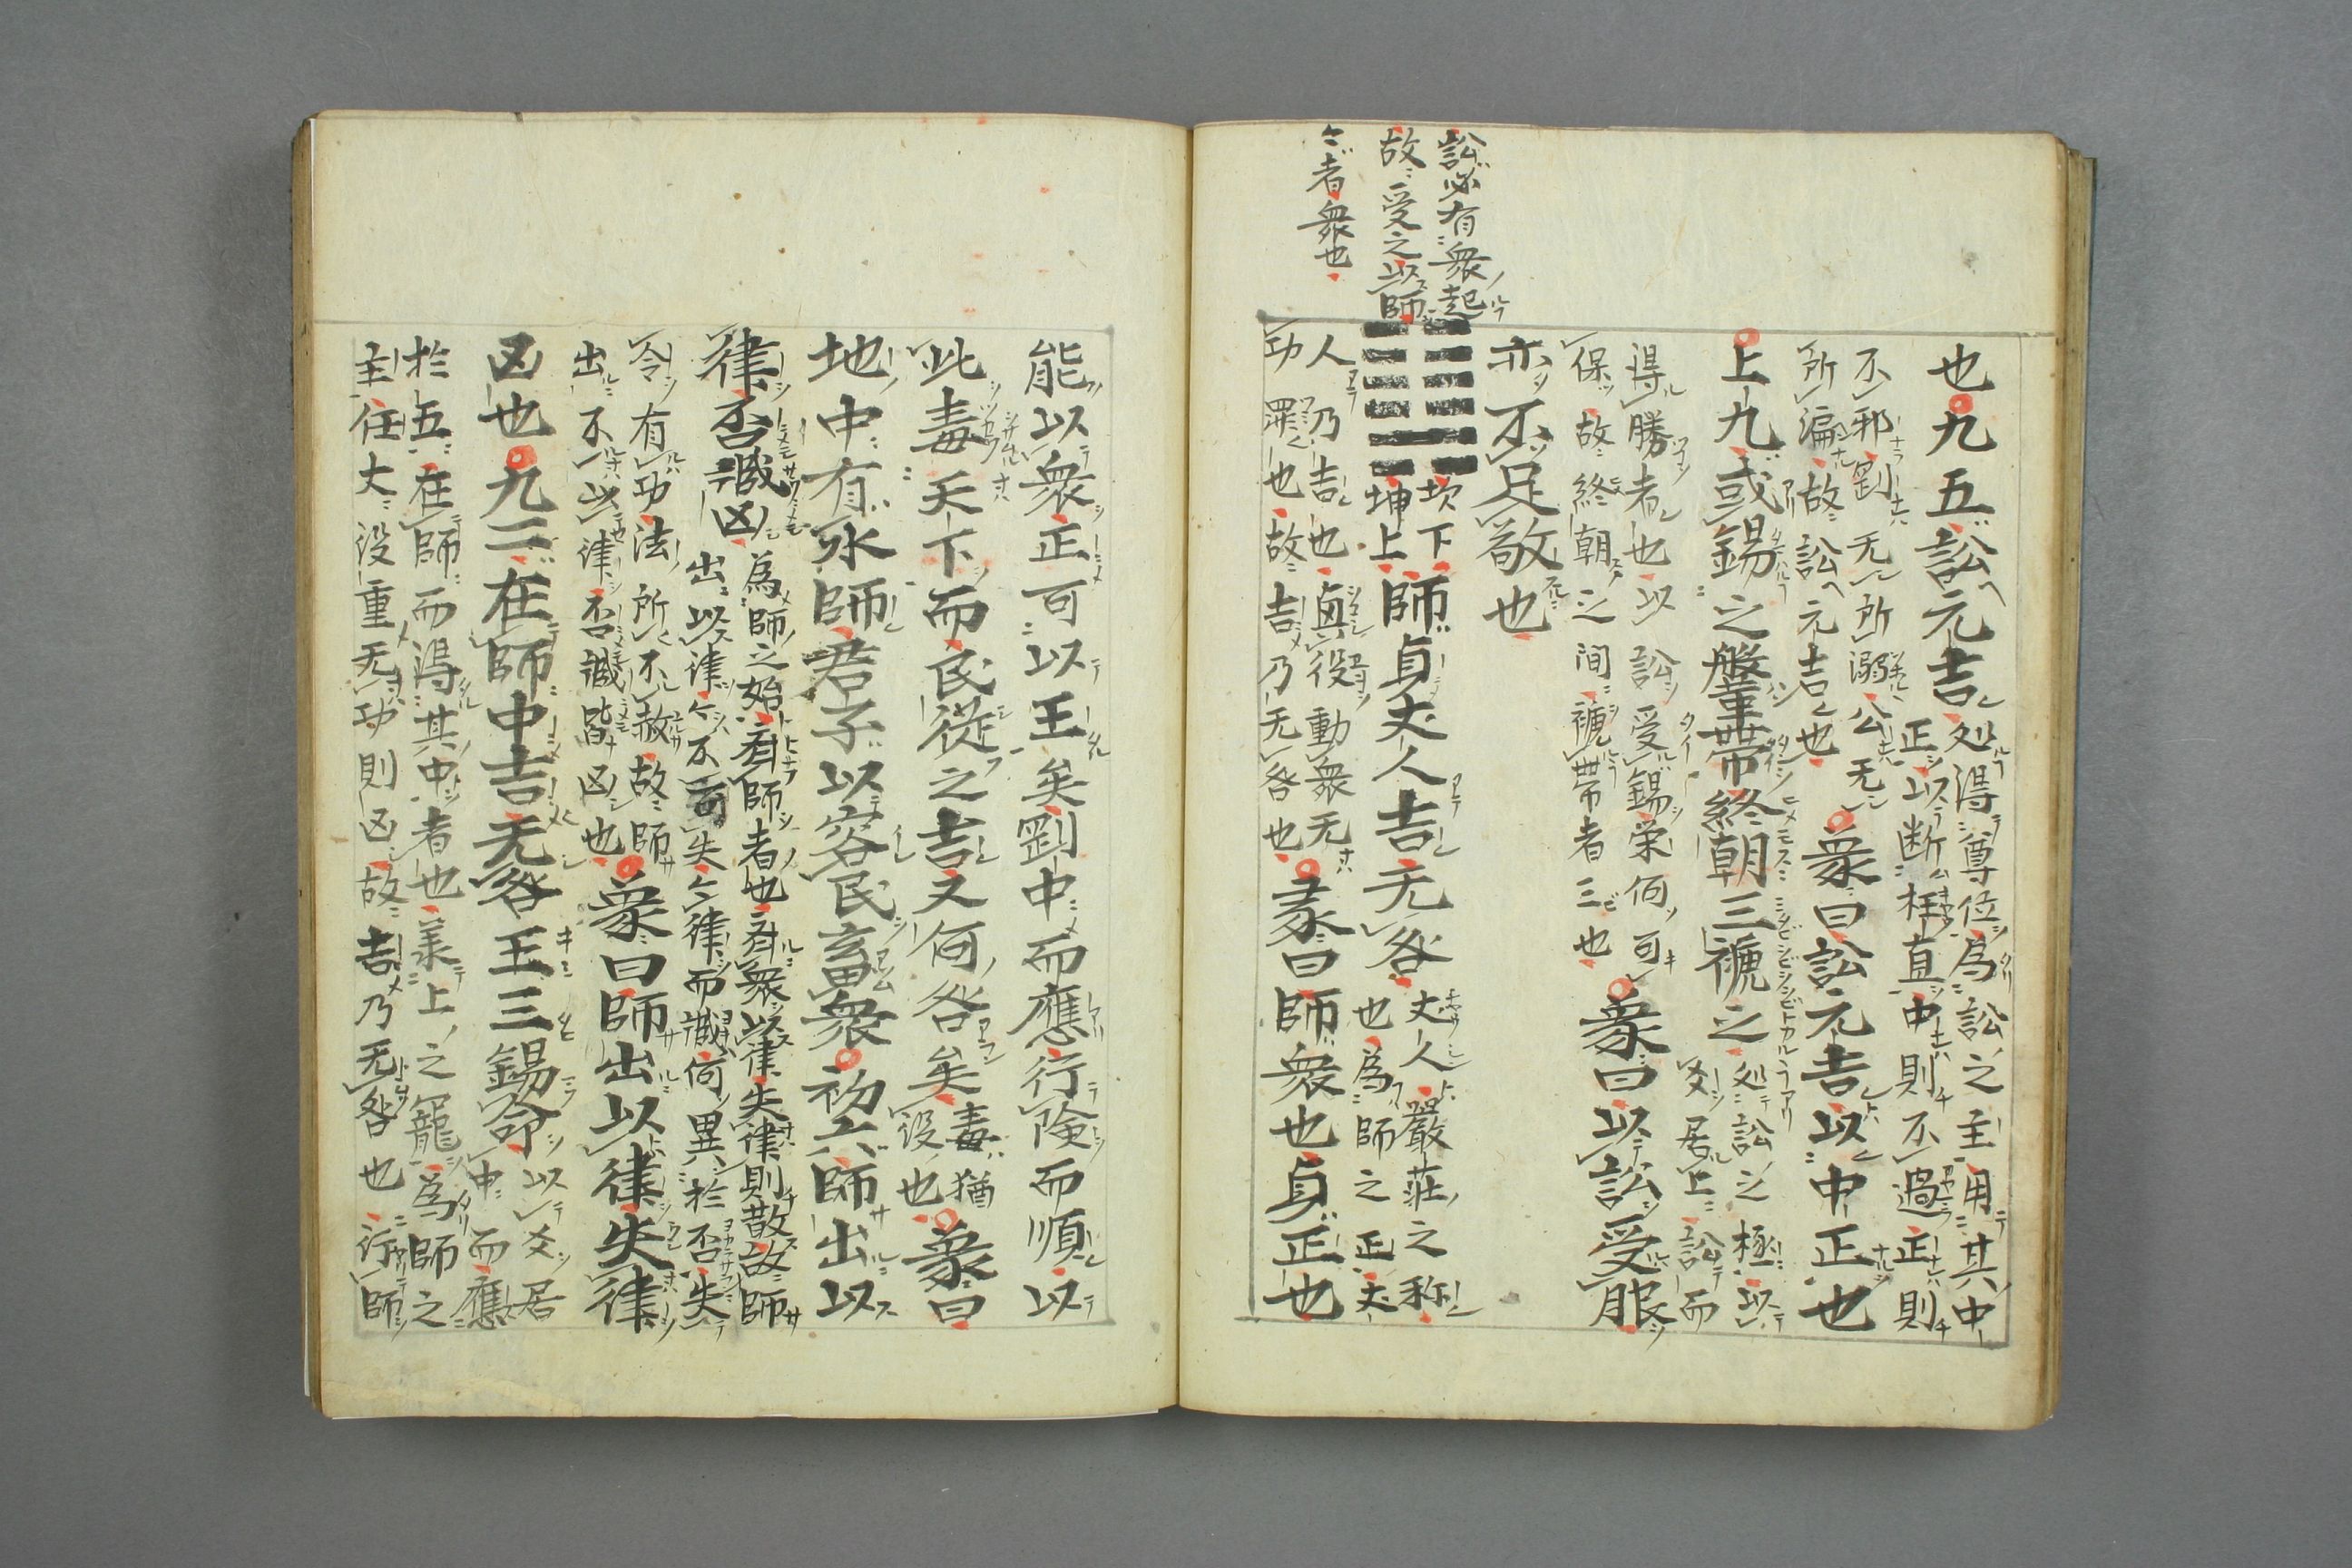 訟必有衆起
故受之以師
〻者衆也
也九五訟元吉
処得尊位為訟之主用其中
正以断枉直中則不過正則
不邪剛无所溺公无
所偏故訟元吉也
象曰訟元吉以中正也
上九或錫之鞶帯終朝三褫之
処訟之極以
爻居上訟而
得勝者也以訟受錫栄何可
保故終朝之間褫帯者三也
象曰以訟受服
亦不足敬也
坎下
坤上
師貞丈人吉无咎
丈人嚴荘之称
也為師之正丈
人乃吉也興役動衆无
功罪也故吉乃无咎也
彖曰師衆也貞正也
能以衆正可以王矣剛中而應行険而順以
此毒天下而民従之吉又何咎矣
毒猶
役也
象曰
地中有水師君子以容民畜衆初六師出以
律否臧凶
為師之始齊師者也齊衆以律失律則散故師
出以律〻不可失〻律而臧何異於否失
令有功法所不赦故師
出不以律否臧皆凶也
象曰師出以律失律
凶也九二在師中吉无咎王三錫命
以爻居
中而應
於五在師而得其中者也羙上之寵為師之
主任大役重无功則凶故吉乃无咎也行師